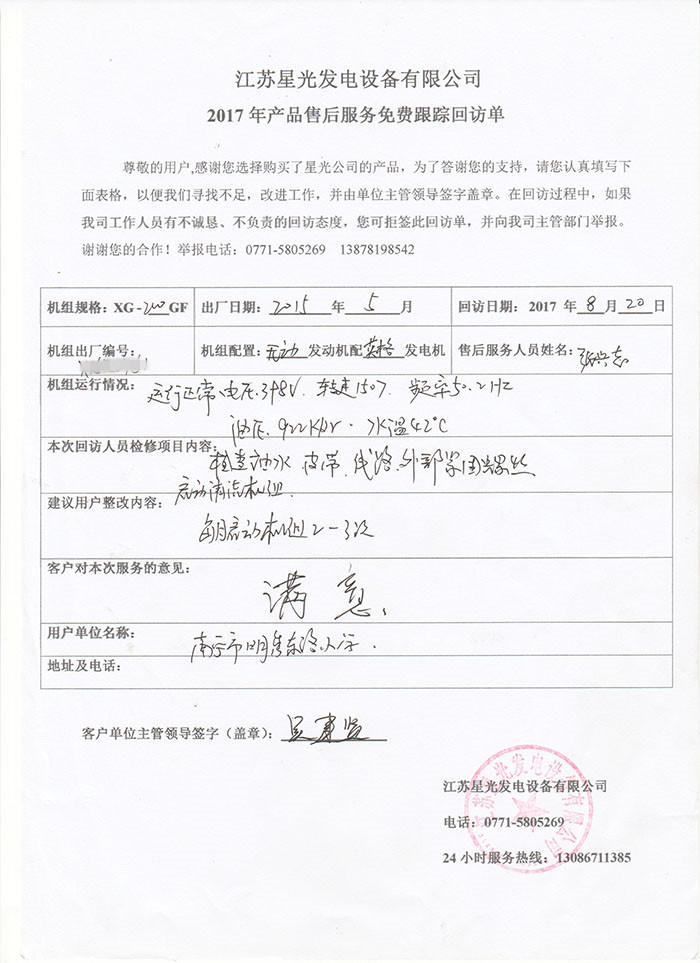 江苏星光发电设备有限公司
2017 年产品售后服务免费跟踪回访单
尊敬的用户,感谢您选择购买了星光公司的产品，为了答谢您的支持，请您认真填写下
面表格，以便我们寻找不足，改进工作，并由单位主管领导签字盖章。在回访过程中，如果
我司工作人员有不诚恳、不负责的回访态度，您可拒签此回访单，并向我司主管部门举报。
谢谢您的合作！举报电话：0771-5805269 13878198542
机组规格：XG-200GF 出厂日期：2015 年 5 月 回访日期：2017 年 8 月 20 日
机组出厂编号： 机组配置：无动 发动机配 英格 发电机 售后服务人员姓名：
机组运行情况： 运行正常、电压.398V. 转速1507. 频率50.2HZ
油压. 水温42°C
本次回访人员检修项目内容： 检查油水 皮带、线路、外部紧固螺丝
启动 机组.
建议用户整改内容：
每月启动机组2-3次
客户对本次服务的意见：
满意、
用户单位名称：
南宁市明秀东路小学.
地址及电话：
客户单位主管领导签字（盖章）：
江苏星光发电设备有限公司
电话：0771-5805269
24 小时服务热线：13086711385
江苏星光发电设备有限公司